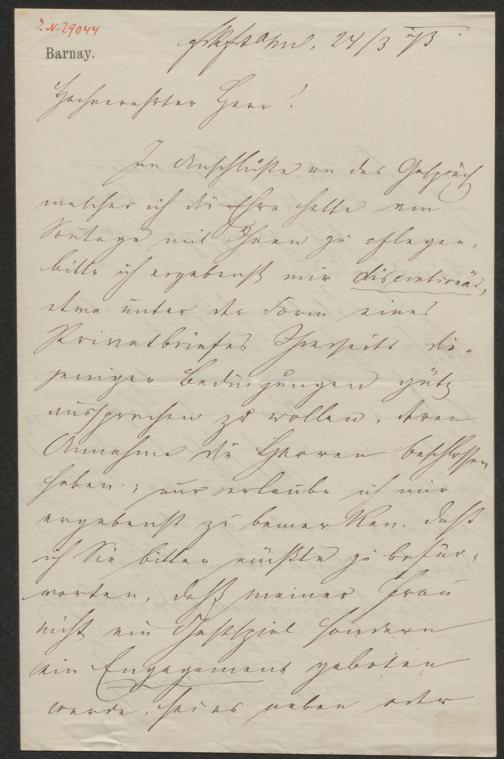 I.N. 29044
Barnay.
24/3 73.
Hochverehrter Herr!
Im Anschluße an das Gespräch
welches ich die Ehre hatte am
Sontage mit Ihnen zu pflegen,
bitte ich ergebenst mir discretionär,
etwa unter der Form eines
Privatbriefes Ihrerseits die-
jenigen Bedingungen gütg
aussprechen zu wollen, deren
Annahme die Herren beschlossen
haben; nur erlaube ich mir
ergebenst zu bemerken, daß
ich Sie bitten müßte zu befür-
worten, daß meiner Frau
nicht ein Gastspiel sondern
ein Engagement geboten
werde, sei es neben oder